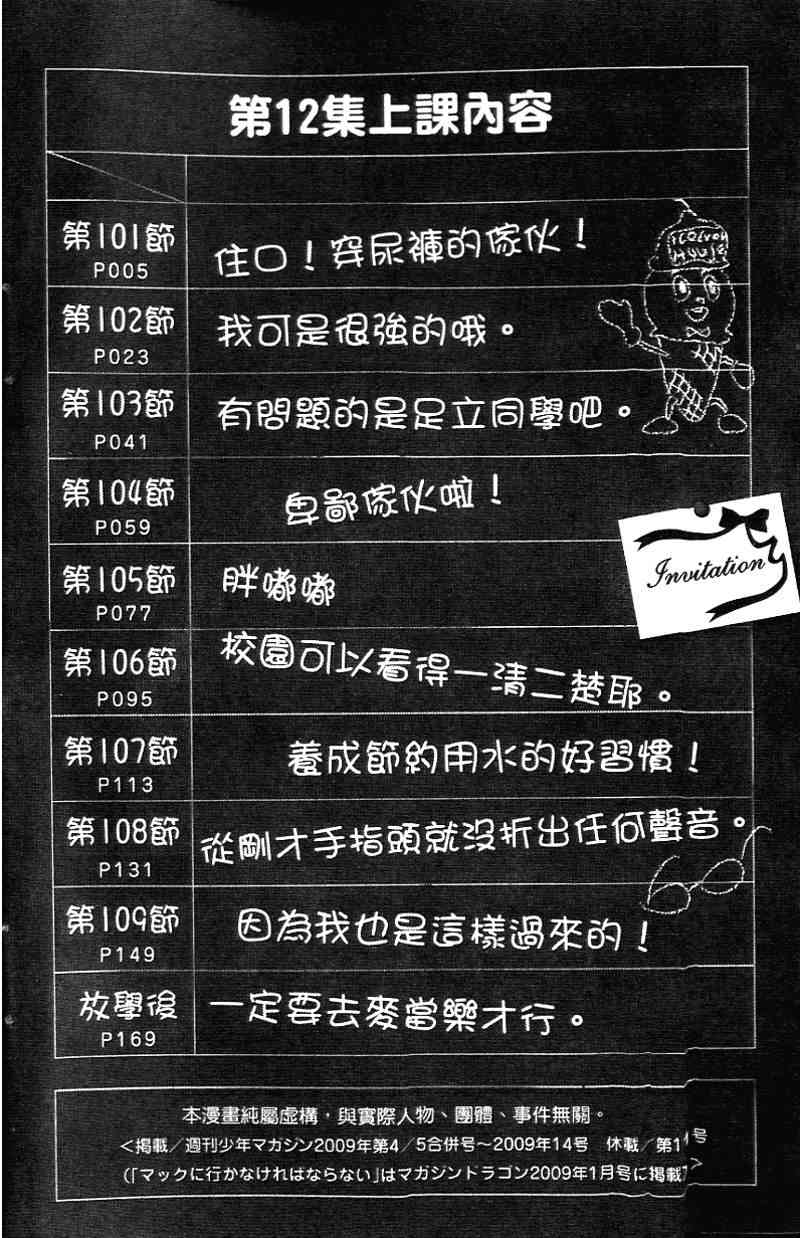 第12集上課內容
第101節
P005
住口！穿尿褲的傢伙！
第102節
P023
我可是很強的哦。
第103節
P041
有問題的是足立同學吧。
第104節
P059
卑鄙傢伙啦！
Invitation
第105節
P077
胖嘟嘟
第106節
P095
校園可以看得一清二楚耶。
第107節
P113
養成節約用水的好習慣！
第108節
P131
從剛才手指頭就沒折出任何聲音。
第109節
P149
因為我也是這樣過來的！
放學後
P169
一定要去麥當樂才行。
本漫畫純屬虛構，與實際人物、團體、事件無關。
＜掲載／週刊少年マガジン2009年第4／5合併号～2009年14号　休載／第11号
（「マックに行かなければならない」はマガジンドラゴン2009年1月号に掲載）＞